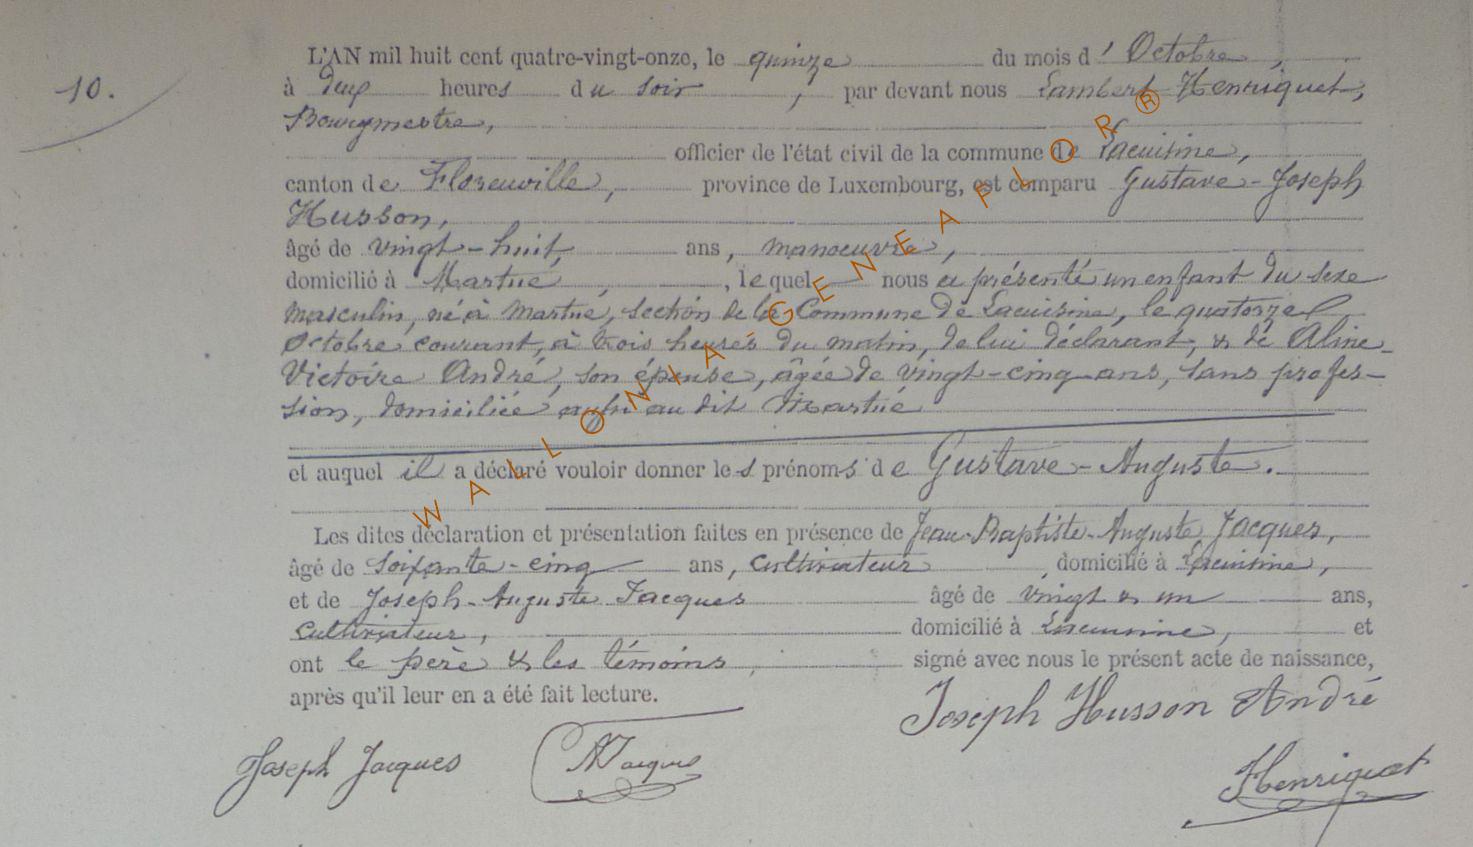 L'AN mil huit cent quatre-vingt-onze, le quinze du mois d' Octobre,
10.
à deux heures du soir, par devant nous Lambert Henriquet,
Bourgmestre,
officier de l'état civil de la commune de Lacuisine,
canton de Florenville, province de Luxembourg, est comparu Gustave-Joseph
Husson,
âgé de vingt-huit, ans, manoeuvre,
domicilié à Martué, lequel nous a présenté un enfant du sexe
masculin, né à Martué, section de la Commune de Lacuisine, le quatorze
Octobre courant, à trois heures du matin, de lui déclarant, & de Aline-
Victoire André, son épouse, âgée de vingt-cinq ans, sans profes-
sion, domiciliée au dit Martué
et auquel il a déclaré vouloir donner les prénoms de Gustave-Auguste.
Les dites déclaration et présentation faites en présence de Jean-Baptiste-Auguste Jacques,
âgé de soixante-cinq ans, cultivateur, domicilié à Lacuisine,
et de Joseph-Auguste Jacques âgé de vingt & un ans,
cultivateur, domicilié à Lacuisine, et
ont le père & les témoins, signé avec nous le présent acte de naissance,
après qu'il leur en a été fait lecture.
Joseph Husson André
Joseph Jacques Jacques
Henriquet
WALLONIA-GENEAFLOR®